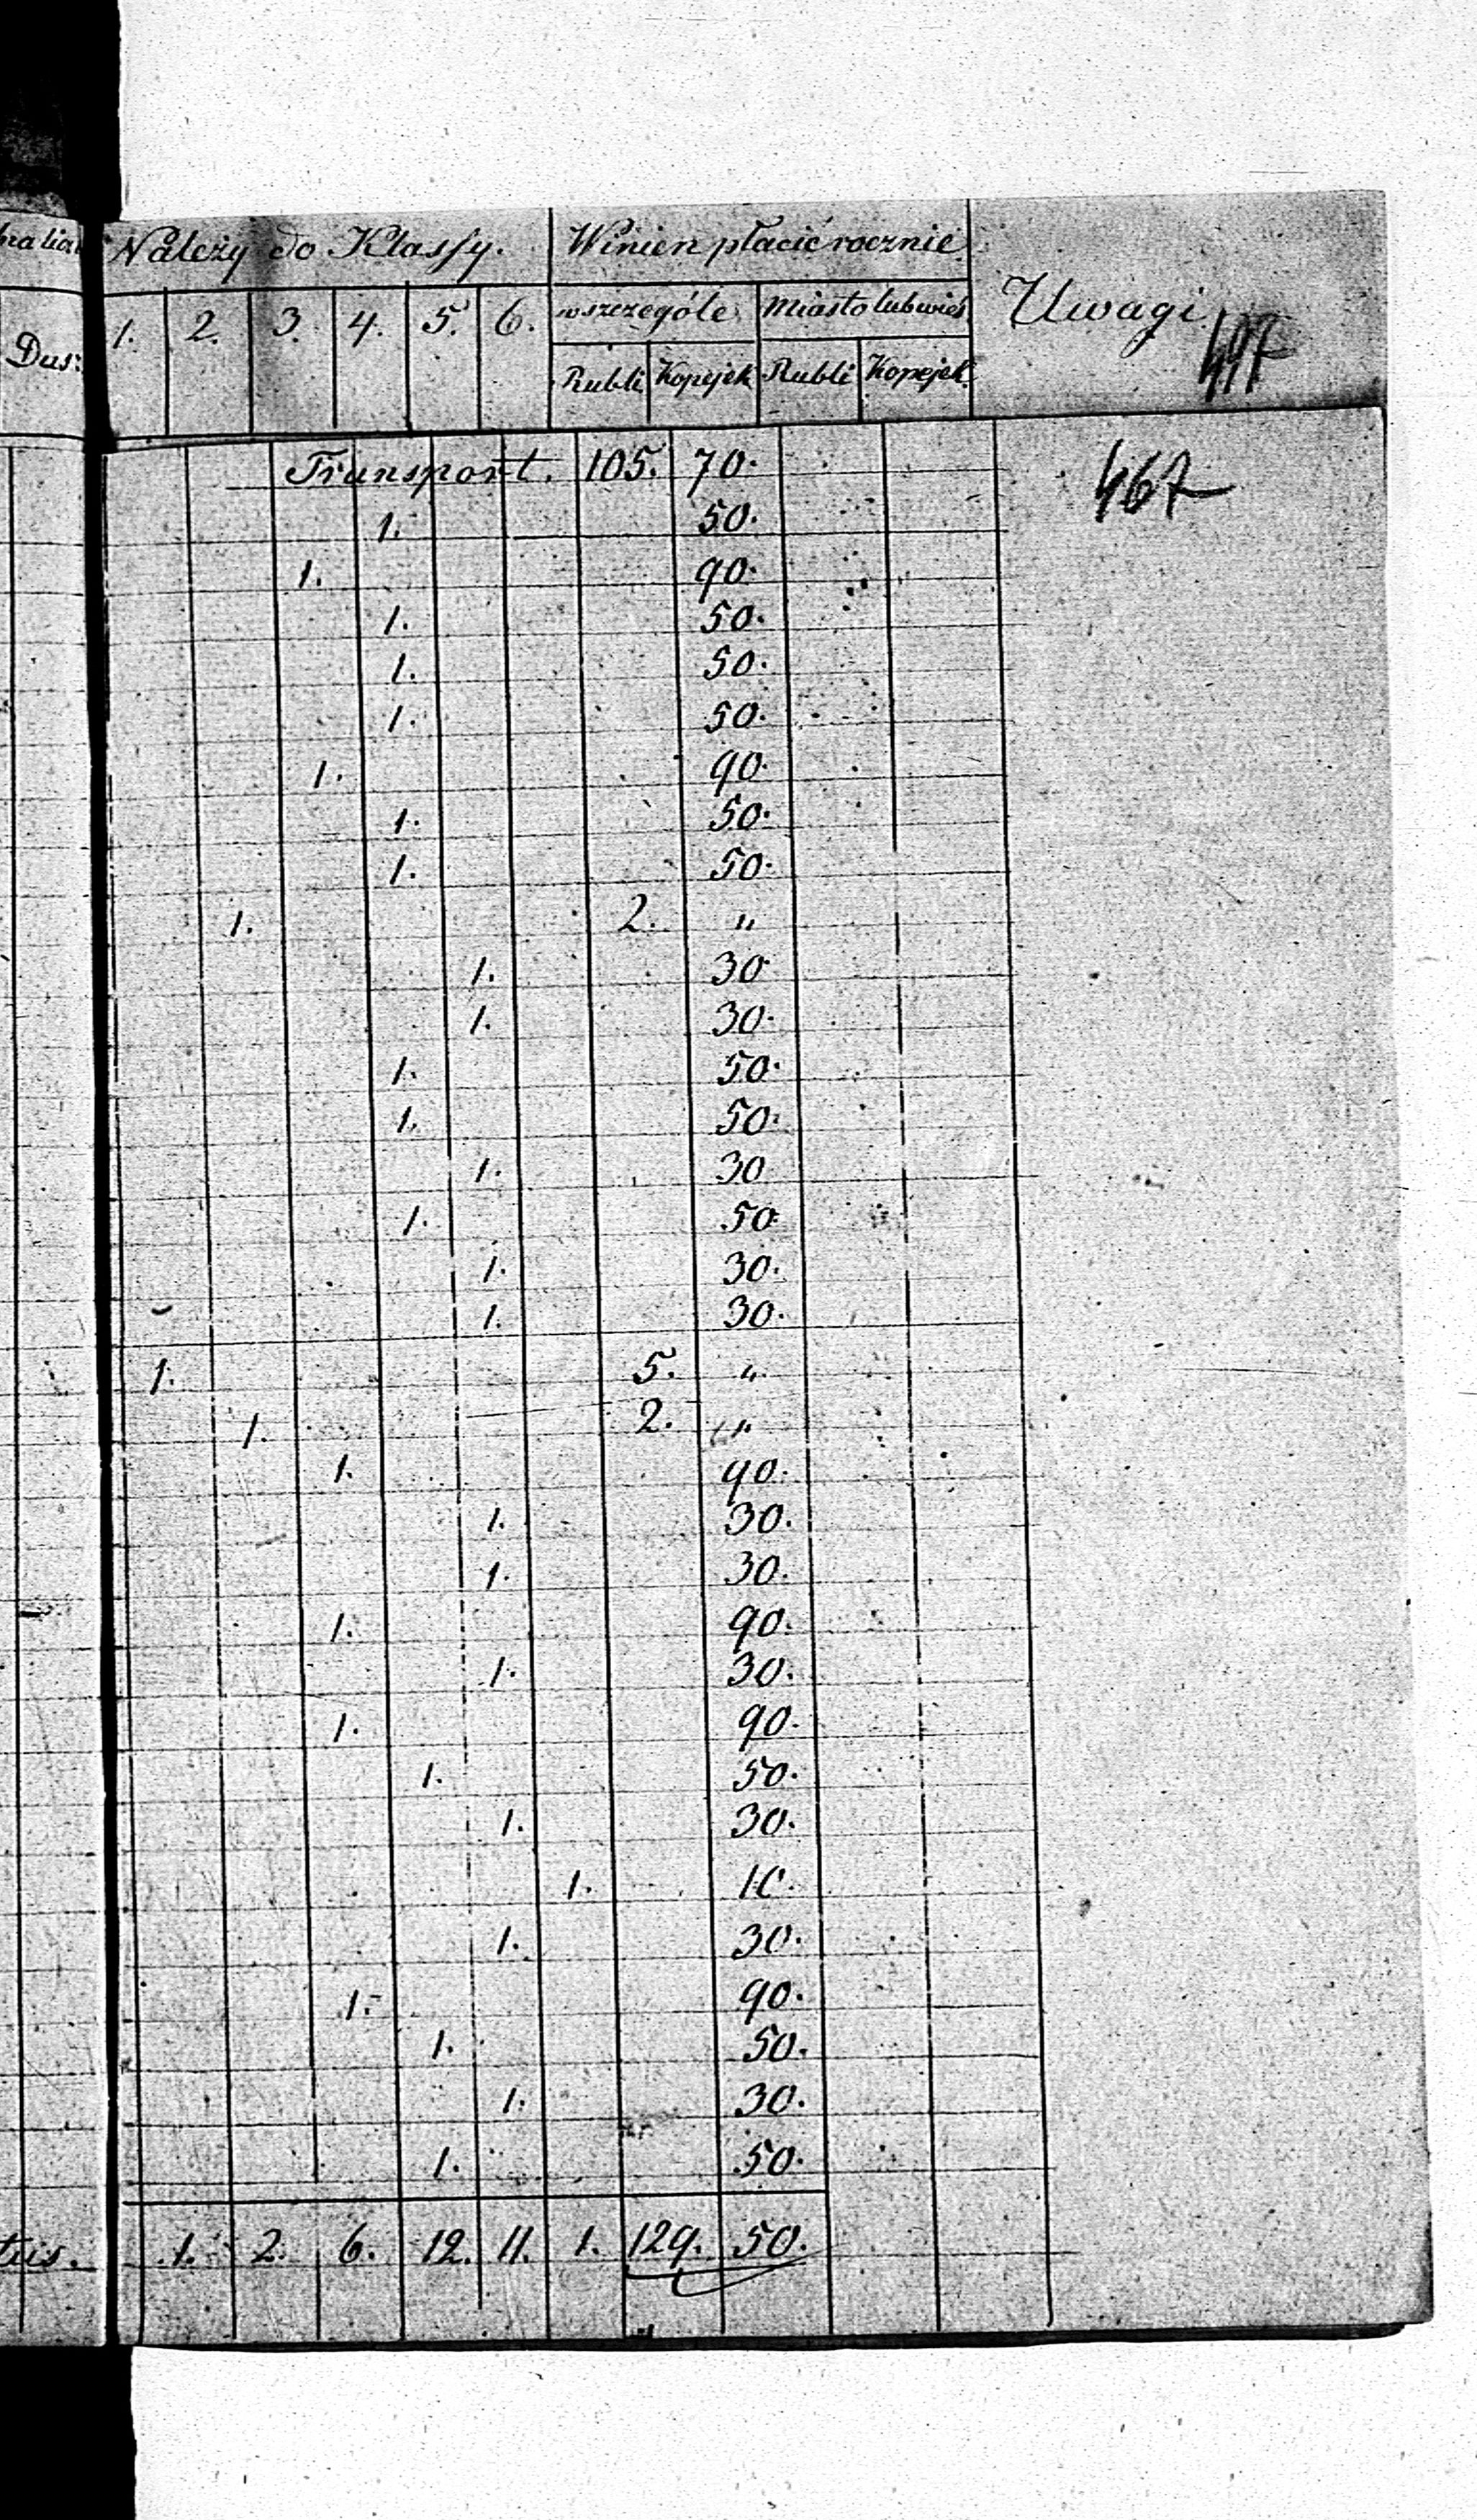 Należy do Klassy. Winien płacić rocznie Uwagi
1. 2. 3. 4. 5. 6. wszczególe Miasto lub wieś
Dus: Rubli Kopejek Rubli Kopejek
497
Transport. 105. 70.
467
1. 50.
1. 90.
1. 50.
1. 50.
1. 50.
1. 90.
1. 50.
1. 50.
1. 2. "
1. 30
1. 30.
1. 50.
1. 50.
1. 30
1. 50
1. 30.
1. 30.
1. 5. "
1. 2. "
1. 90.
1. 30.
1. 30.
1. 90.
1. 30.
1. 90.
1. 50.
1. 30.
1. 10.
1. 30.
1. 90.
1. 50.
1. 30.
1. 50.
1. 2. 6. 12. 11. 1. 129. 50.